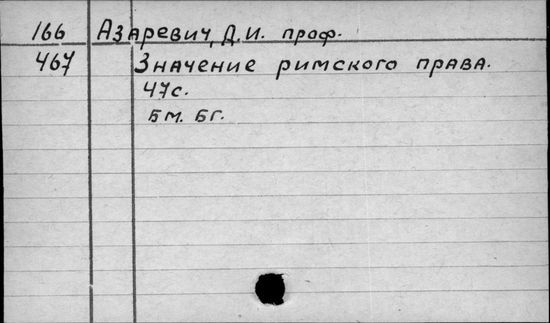 166 Азаревич, Д.И. проф.
467 Значение римского права.
47с.
Бм. Бг.